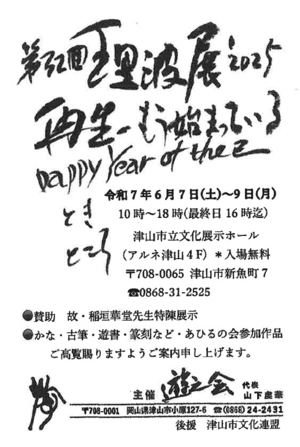 第32回 理波展 2025
再生-もう始まっている
Happy Year of the 巳
令和7年6月7日(土)～9日(月)
とき
10時～18時(最終日16時迄)
ところ
津山市立文化展示ホール
(アルネ津山4F) ＊入場無料
〒708-0065 津山市新魚町7
☎0868-31-2525
●賛助 故・稲垣華堂先生特陳展示
●かな・古筆・遊書・篆刻など・あひるの会参加作品
ご高覧賜りますようご案内申し上げます。
主催 遊之会 代表
山下
〒708-0001 岡山県津山市小原127-6 ☎(0868)24-2431
後援 津山市文化連盟